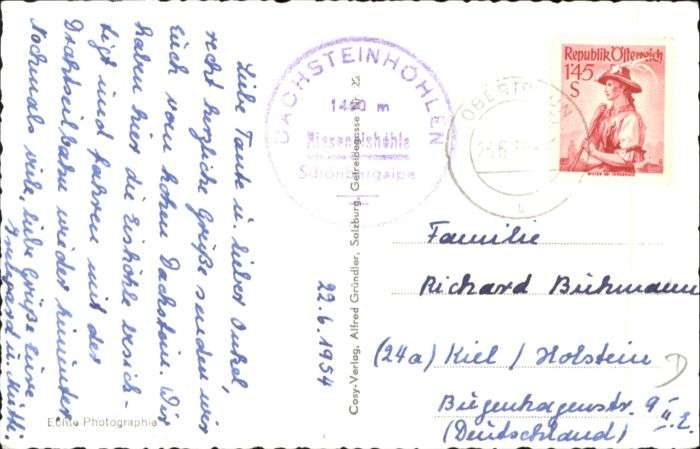 Liebe Tante u. lieber Onkel,
recht herzliche Grüße senden wir
Euch vom hohen Dachstein. Wir
haben hier die Eishöhle besich-
tigt und fahren mit der
Drahtseilbahn wieder hinunter
Nochmals viele, liebe Grüße Eure
u. Mutti
22.6.1954
Echte Photographie
Cosy-Verlag, Alfred Gründler, Salzburg, Getreidegasse Nr. 22
DACHSTEINHÖHLEN
m
Rieseneishöhle
Schönbergalpe
OBERTRAUN
Republik Österreich
1'45
S
Familie
Richard Buhmann
(24a) Kiel / Holstein
Bugenhagenstr. 9 II u. 2.
(Deutschland)